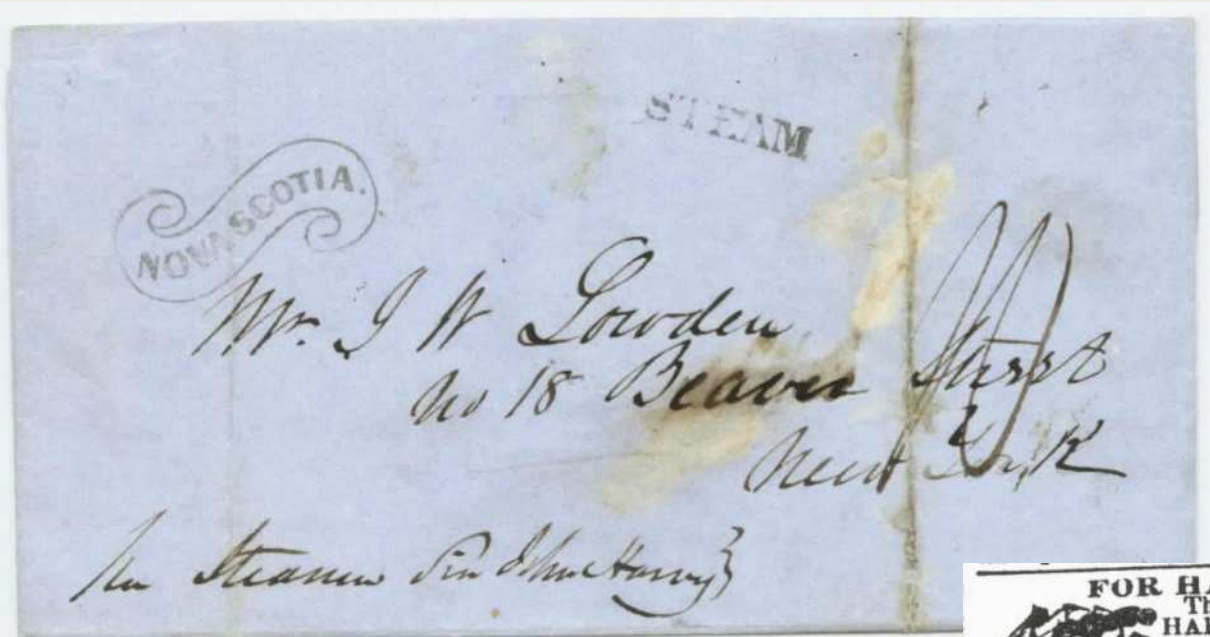 STEAM
NOVA SCOTIA.
Mr. J W Lowden
No 18 Beaver Street
New York
Per Steamer Sir John Harvey
FOR HA
Th
HAR